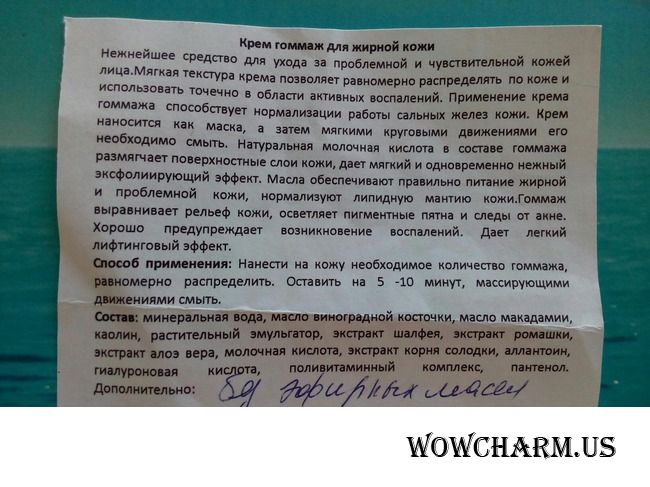 Крем гоммаж для жирной кожи
Нежнейшее средство для ухода за проблемной и чувствительной кожей
лица.Мягкая текстура крема позволяет равномерно распределять по коже и
использовать точечно в области активных воспалений. Применение крема
гоммажа способствует нормализации работы сальных желез кожи. Крем
наносится как маска, а затем мягкими круговыми движениями его
необходимо смыть. Натуральная молочная кислота в составе гоммажа
размягчает поверхностные слои кожи, дает мягкий и одновременно нежный
эксфолиирующий эффект. Масла обеспечивают правильно питание жирной
и проблемной кожи, нормализуют липидную мантию кожи.Гоммаж
выравнивает рельеф кожи, осветляет пигментные пятна и следы от акне.
Хорошо предупреждает возникновение воспалений. Дает легкий
лифтинговый эффект.
Способ применения: Нанести на кожу необходимое количество гоммажа,
равномерно распределить. Оставить на 5 -10 минут, массирующими
движениями смыть.
Состав: минеральная вода, масло виноградной косточки, масло макадамии,
каолин, растительный эмульгатор, экстракт шалфея, экстракт ромашки,
экстракт алоэ вера, молочная кислота, экстракт корня солодки, аллантоин,
гиалуроновая кислота, поливитаминный комплекс, пантенол.
Дополнительно: без эфирных масел
WOWCHARM.US